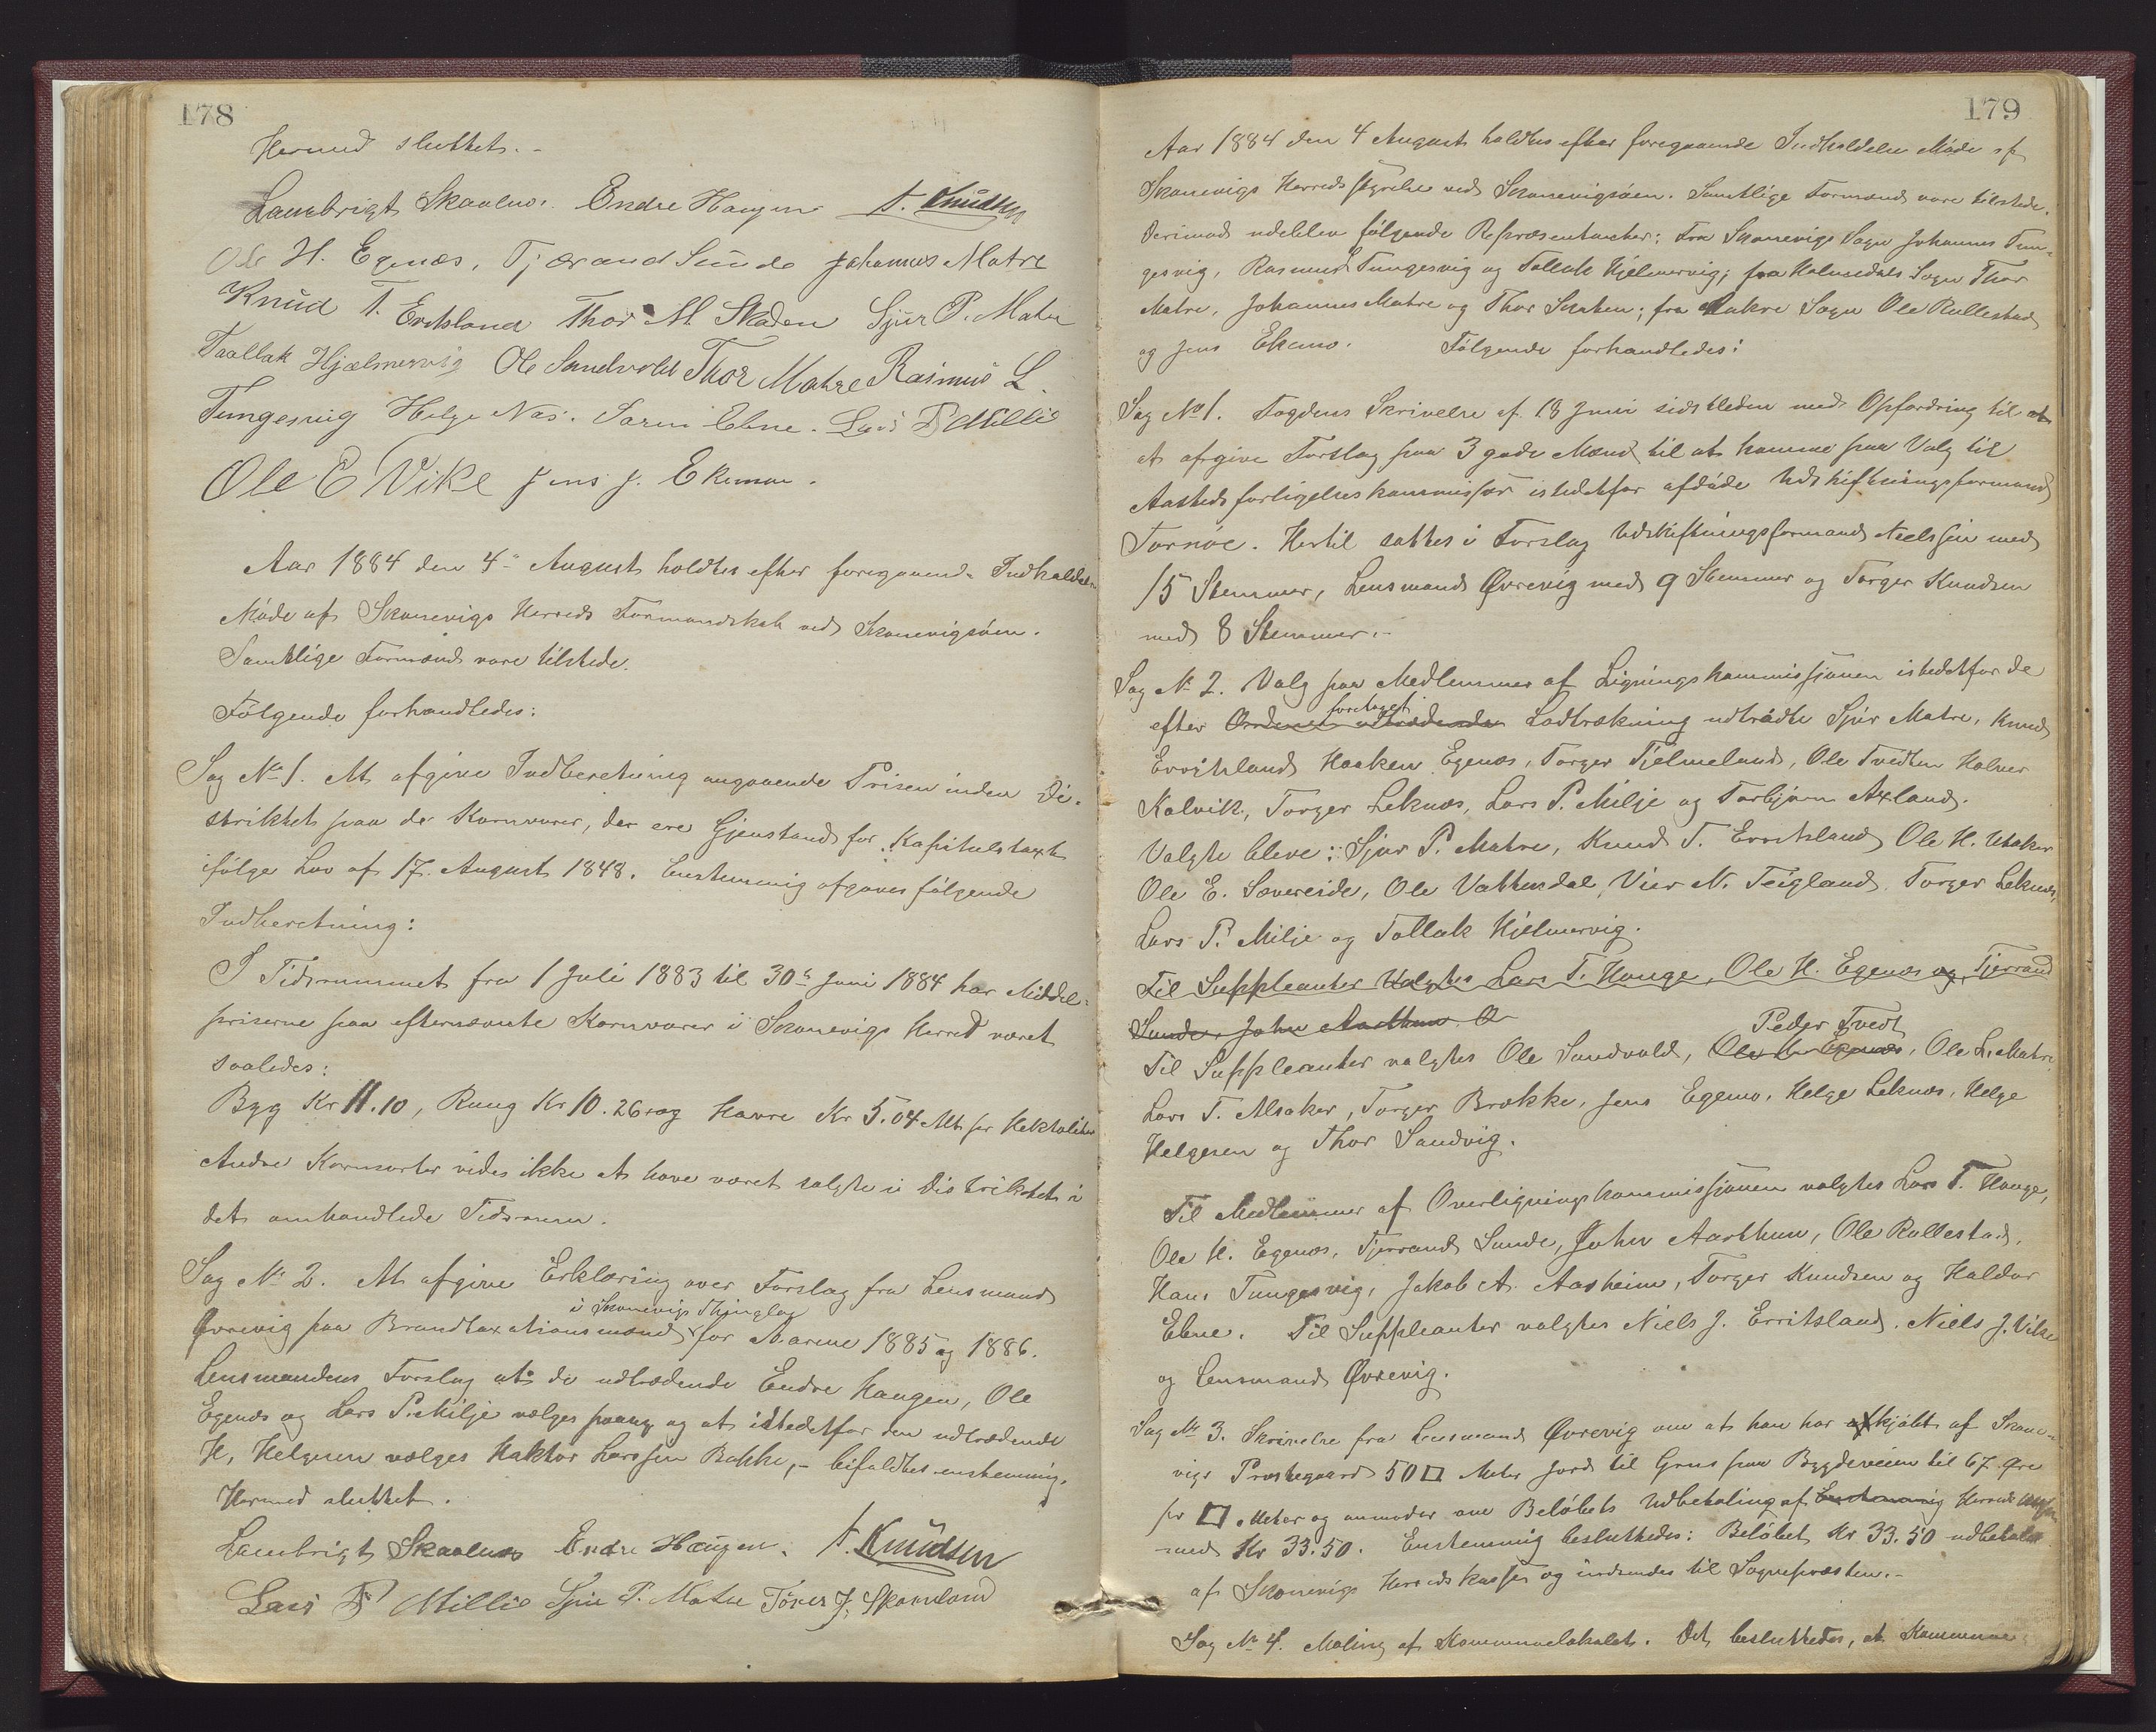 178
Hermed sluttet. -
Lambrigt Skaalnes. Endre Haugen T. Knudsen
Ole H. Egenæs, Tjærand Sunde Johannes Matre
Knud T. Eritsland Thor M. Skaden Sjur P. Matre
Taallak Hjælmervig Ole Sandvold Thor Matre Rasmus L.
Tungesvig Helge Næs. Søren Ebne. Lars P Millie
Ole E Vike Jens J. Ekemoe.
Aar 1884 den 4de August holdtes efter foregaaende Indkaldelse
Møde af Skonevigs Herreds Formandskab ved Skonevigsøen.
Samtlige Formænd vare tilstede.
Følgende forhandledes:
Sag No 1. At afgive Indberetning angaaende Prisen inden Di-
striktet paa de Kornvarer, der ere Gjenstand for Kapitelstaxt
ifølge Lov af 17. August 1848. Enstemmig afgaves følgende
Indberetning:
I Tidsrummet fra 1 Juli 1883 til 30te Juni 1884 har Middel-
priserne paa efternævnte Kornvarer i Skonevigs Herred været
saaledes:
Byg Kr 11.10, Rug Kr 10.26 og Havre Kr 5.04 Alt pr Hektoliter
Andre Kornsorter vides ikke at have været solgte i Distriktet i
det omhandlede Tidsrum.
Sag No 2. At afgive Erklæring over Forslag fra Lensmand
i Skonevigs Thinglag
Øvrevig paa Brandtaxationsmænd for Aarene 1885 og 1886.
Lensmandens Forslag at de udtrædende Endre Haugen, Ole
Egenæs og Lars P. Milje vælges paany og at istedetfor den udtrædende
H. Helgesen vælges Haktor Larssen Bakke, - bifaldtes enstemmig.
Hermed sluttet.
Lambrigt Skaalnes Endre Haugen. T. Knudsen
Lars P Millie Sjur P. Matre Tørres J. Skomland
179
Aar 1884 den 4 August holdtes efter foregaaende Indkaldelse Møde af
Skonevigs Herredsstyrelse ved Skonevigsøen. Samtlige Formænd vare tilstede.
Derimod udeblev følgende Repræsentanter: Fra Skonevigs Sogn Johannes Tun-
gesvig, Rasmus Tungesvig og Tollak Hjelmervig; fra Holmedals Sogn Thor
Matre, Johannes Matre og Thor Skaten; fra Aakre Sogn Ole Rullestad
og Jens Ekemo. Følgende forhandledes:
Sag No 1. Fogdens Skrivelse af 18 Juni sidstleden med Opfordring til at
at afgive Forslag paa 3 gode Mænd til at komme paa Valg til
Aastedsforligelseskommissær istedetfor afdøde Udskiftningsformand
Tornøe. Hertil sattes i Forslag Udskiftningsformand Nielsen med
15 Stemmer, Lensmand Øvrevig med 9 Stemmer og Torger Knudsen
med 8 Stemmer. -
Sag No 2. Valg paa Medlemmer af Ligningskommissjonen istedetfor de
foretaget
efter Ordenen udtrædende Lodtrækning udtrådte Sjur Matre, Knud
Erritsland Haaken Egenæs, Torger Tjelmeland, Ole Tvedten Halvor
Kalvik, Torger Leknæs, Lars P. Milje og Torbjørn Axland.
Valgte bleve: Sjur P. Matre, Knud T. Erritsland Ole H. Utaker
Ole E. Sævereide, Ole Vattendal, Vier N. Teigland Torger Leknæs,
Lars P. Milje og Tollak Hjelmervig.
Til Suppleanter valgtes Lars T. Hauge, Ole H. Egenæs og Tjerrand
Sunde, John Aarthun. O
Peder Tvedt
Til Suppleanter valgtes Ole Sandvold, Ole H. Egenæs, Ole L. Matre
Lars T. Alsaker, Torger Brække, Jens Egemo, Helge Leknæs, Helge
Helgesen og Thor Sandvig.
Til Medlemmer af Overligningskommissjonen valgtes Lars T. Hauge,
Ole H. Egenæs, Tjerrand Sunde, John Aarthun, Ole Rullestad,
Hans Tungesvig, Jakob A. Aasheim, Torger Knudsen og Haldor
Ebne. Til Suppleanter valgtes Niels J. Erritsland. Niels J. Vike
og Lensmand Øvrevig.
Sag No 3. Skrivelse fra Lensmand Øvrevig om at han har kjøbt af Skone-
vigs Præstegaard 50 □ Meter Jord til Grus paa Bygdeveien til 67 Øre
pr □ Meter og anmoder om Beløbets Udbetaling af Enstemmig Herreds
med Kr 33.50. Enstemmig besluttedes: Beløbet Kr 33.50 udbetales
af Skonevigs Herredskasse og indsendes til Sognepræsten. -
Sag No 4. Maling af Kommunelokalet. Det besluttedes, at Kommune